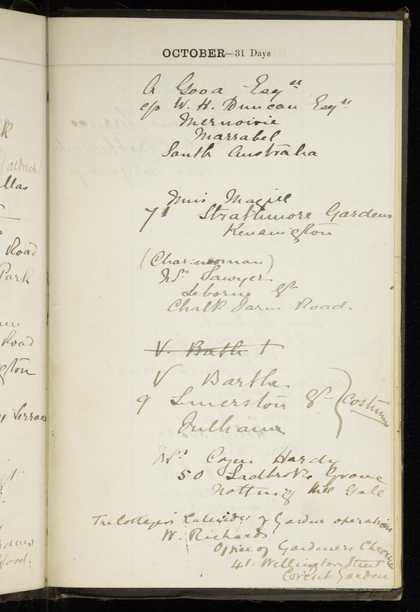 OCTOBER—31 Days
A Good Esqre
c/o W. H. Duncan Esqre
Marrabel
South Australia
Miss Magill
71 Strathmore Gardens
Kensington
(Char-woman)
Mrs Sawyer
Seborne St
Chalk Farm Road.
V. Bath
V Barthe
9 Limerston St (Costumes
Fulham
Mrs Cozens Hardy
50 Ladbroke Grove
Notting Hill Gate
Trollope's Calendar of Garden operations
W. Richards
Office of Gardeners Chronicle
41. Wellington Street
Covent Garden
Road
Park
Road